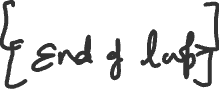 [End of lap]